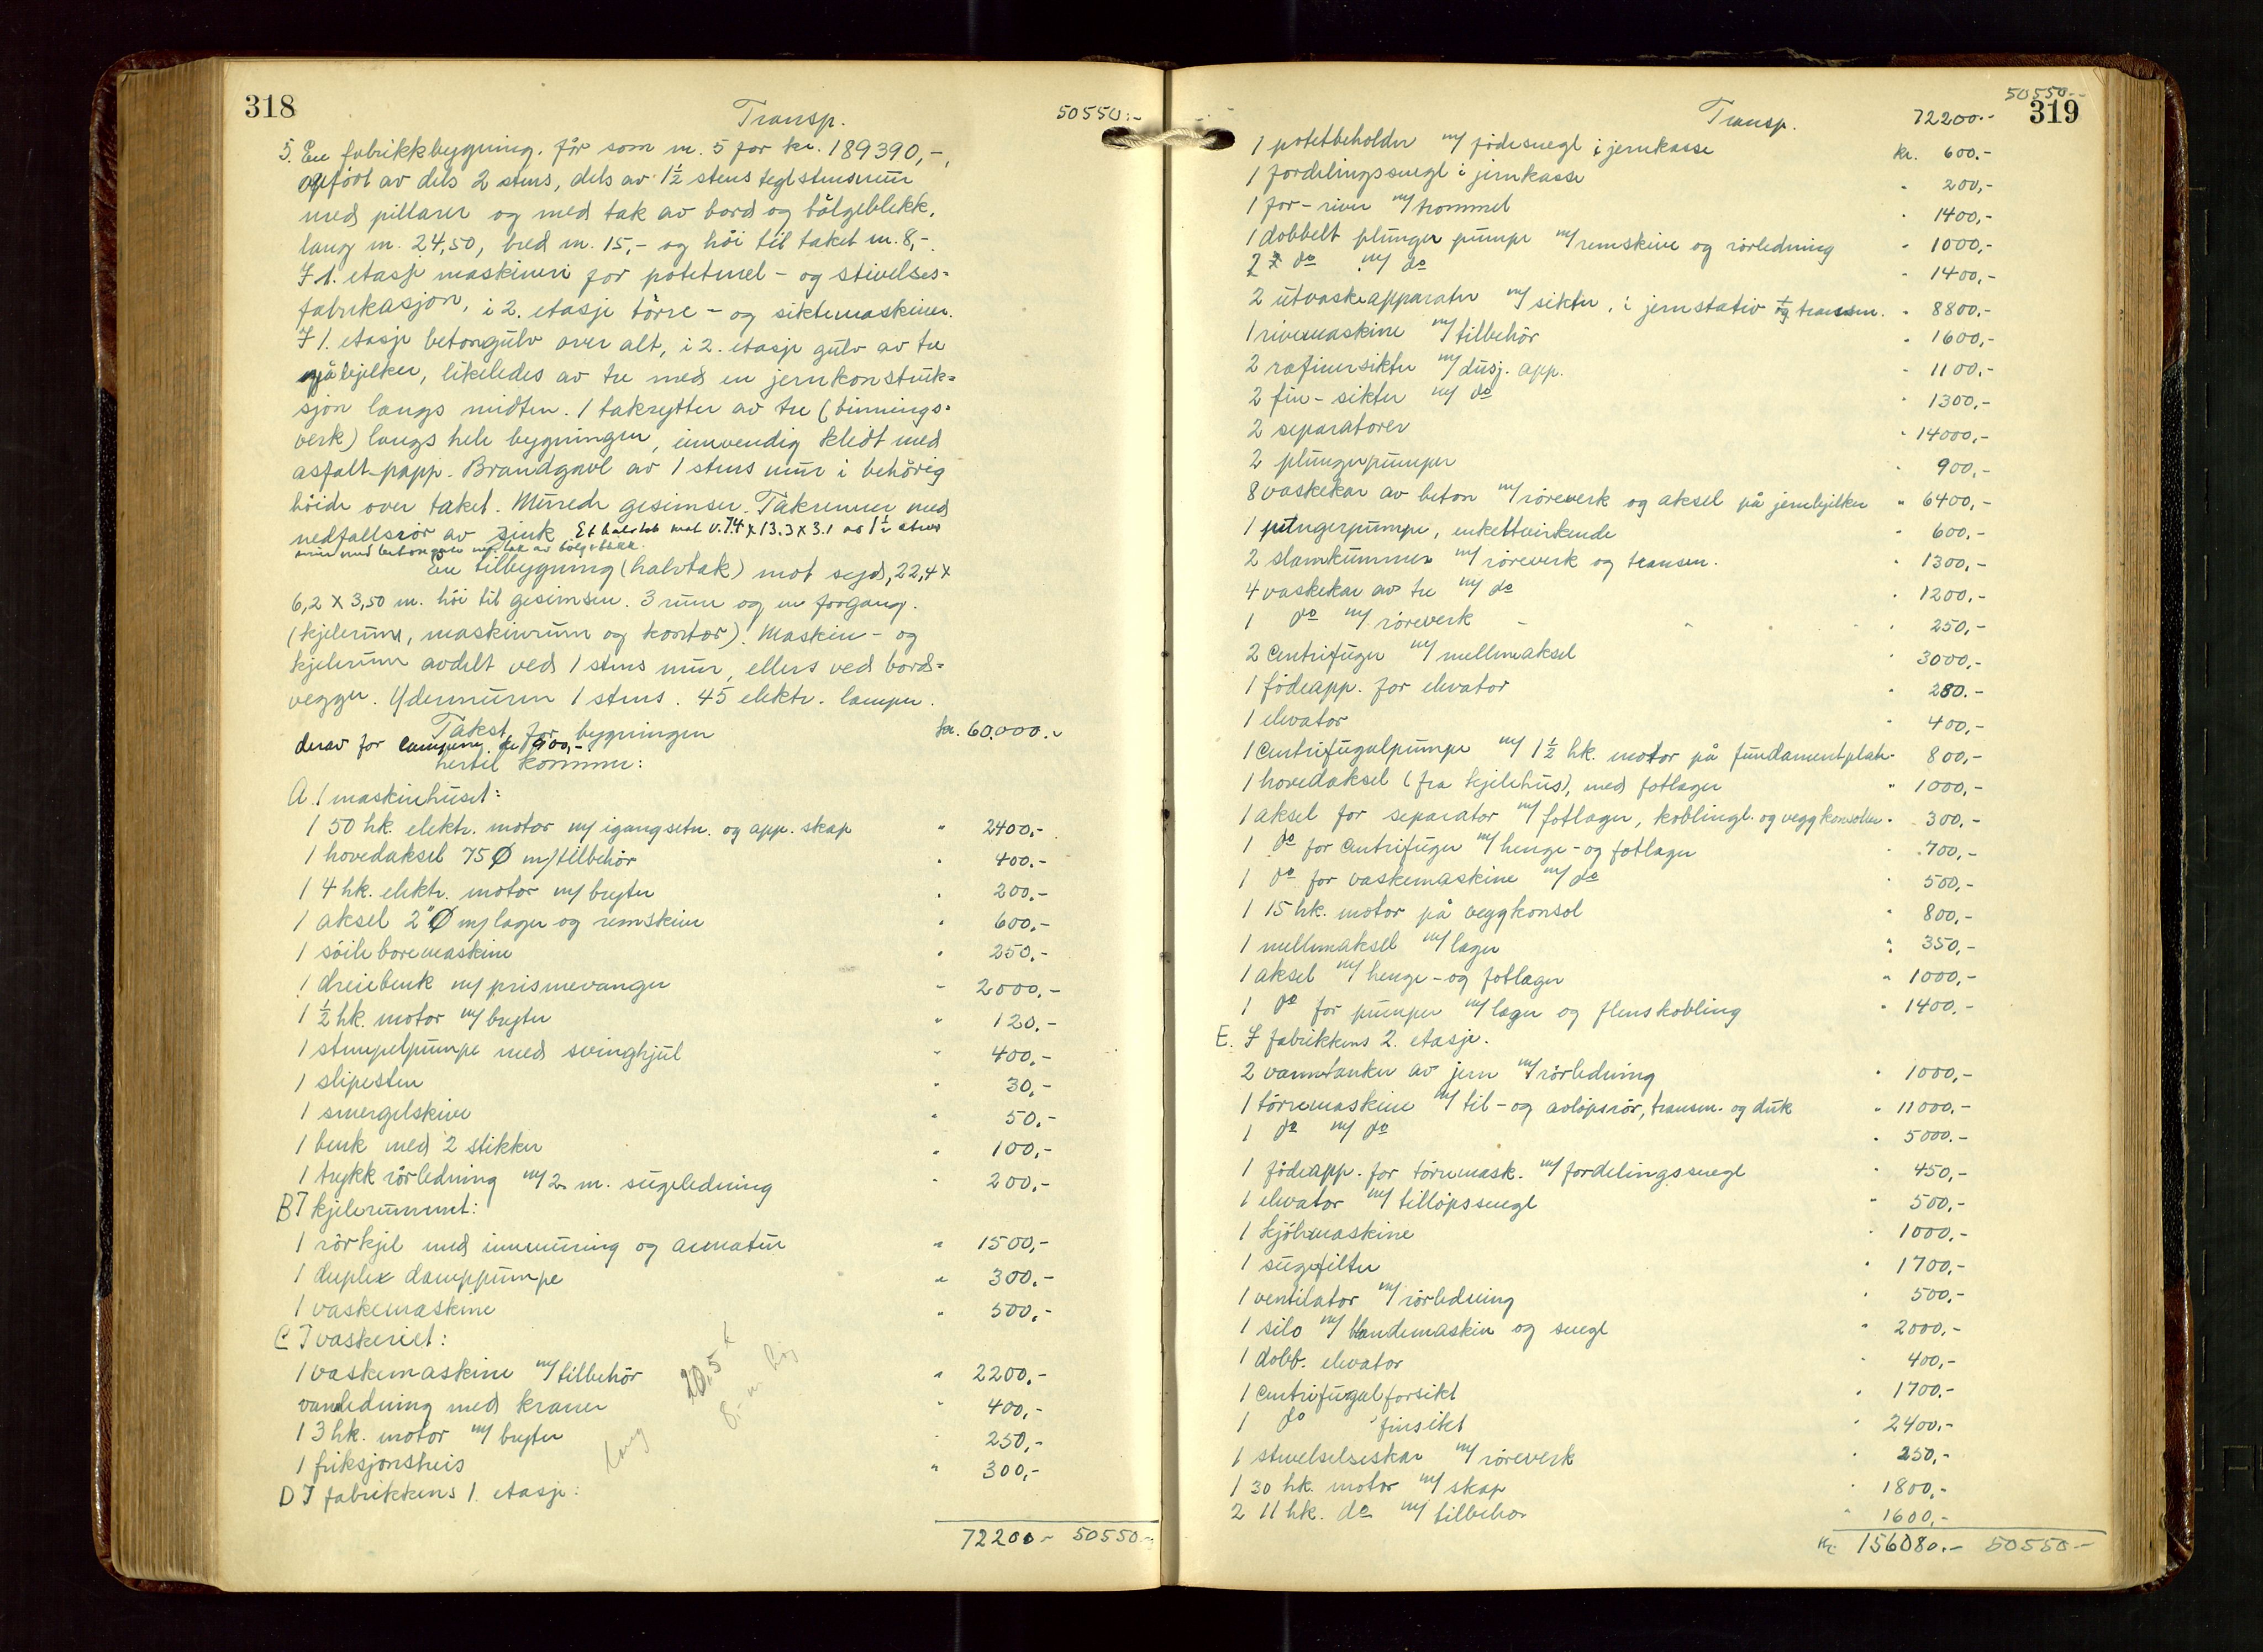 318
Transp. 50550.-
5. En fabrikkbygning. Før som nr. 5 for kr. 189390,-,
opført av dels 2 stens, dels av 1½ stens teglstensmur
med pillarer og med tak av bord og bølgeblekk,
lang m. 24,50, bred m. 15,- og høi til taket m. 8,-.
I 1. etasje maskineri for potetmel- og stivelses=
fabrikasjon, i 2. etasje tørre- og siktemaskiner.
I 1. etasje betongulv over alt, i 2. etasje gulv av tre
på bjelker, likeledes av tre med en jernkonstruk=
sjon langs midten. 1 takrytter av tre (binnings=
verk) langs hele bygningen, innvendig kledt med
asfalt-papp. Brandgavl av 1 stens mur i behørig
høide over taket. Murede gesimser. Takrenner med
nedfallsrør av sink. Et halvtak mot V. 7.4 x 13.3 x 3.1 av 1½ stens
mur med betongulv og tak av bølgeblekk.
En tilbygning (halvtak) mot syd, 22,4 x
6,2 x 3,50 m. høi til gesimsen. 3 rum og en forgang.
(kjelerum, maskinrum og kontor). Maskin- og
kjelerum avdelt ved 1 stens mur, ellers ved bords=
vegger. Ydermuren 1 stens. 45 elektr. lamper.
Takst for bygningen kr. 60.000.-
derav for lampene kr 900,-
hertil kommer:
A. I maskinhuset:
1 50 hk. elektr. motor m/ igangsetn. og app. skap " 2400.-
1 hovedaksel 75 Ø m/ tilbehør " 400.-
1 4 hk. elektr. motor m/ bryter " 200.-
1 aksel 2" Ø m/ lager og remskive " 600.-
1 søileboremaskine " 250.-
1 dreiebenk m/ prismevanger " 2000.-
1 ½ hk. motor m/ bryter " 120.-
1 stempelpumpe med svinghjul " 400.-
1 slipesten " 30.-
1 smergelskive " 50.-
1 benk med 2 stikker " 100.-
1 trykkrørledning m/ 2 m. sugeledning " 200.-
B I kjelerummet:
1 rørkjel med innmuring og armatur " 1500,-
1 duplex damppumpe " 300.-
1 vaskemaskine " 500,-
C I vaskeriet:
1 vaskemaskine m/ tilbehør " 2200.-
vannledning med kraner " 400,-
1 3 hk. motor m/ bryter " 250,-
1 friksjonsheis " 300,-
D I fabrikkens 1. etasje:
lang 20,5 x
8.- m høy
72200.- 50550.-
50550.-
319
Transp. 72200.-
1 potetbeholder m/ fødesnegl i jernkasse kr. 600.-
1 fordelingssnegl i jernkasse " 200,-
1 for-river m/ trommel " 1400,-
1 dobbelt plunger pumpe m/ remskive og rørledning " 1000,-
2 do m/ do " 1400,-
2 utvaskeapparater m/ sikter, i jernstativ og transm. " 8800.-
1 rivemaskine m/ tilbehør " 1600,-
2 rafinersikter m/ dusj. app. " 1100.-
2 fin-sikter m/ do " 1300,-
2 separatorer " 14000,-
2 plungerpumper " 900,-
8 vaskekar av beton m/ røreverk og aksel på jernbjelker " 6400,-
1 plungerpumpe, enkeltvirkende " 600.-
2 slamkummer m/ røreverk og transm. " 1300,-
4 vaskekar av tre m/ do " 1200.-
1 do m/ røreverk " 250,-
2 centrifuger m/ mellemaksel " 3000,-
1 fødeapp. for elevator " 280.-
1 elevator " 400,-
1 centrifugalpumpe m/ 1½ hk. motor på fundamentplate " 800,-
1 hovedaksel (fra kjelehus), med fotlager " 1000,-
1 aksel for separator m/ fotlager, koblingl. og veggkonsoller " 300,-
1 do for centrifuger m/ henge- og fotlager " 700,-
1 do for vaskemaskine m/ do " 500,-
1 15 hk. motor på veggkonsol " 800,-
1 mellemaksel m/ lager " 350,-
1 aksel m/ henge- og fotlager " 1000,-
1 do for pumper m/ lager og flenskobling " 1400,-
E. I fabrikkens 2. etasje.
2 vanntanker av jern m/ rørledning " 1000,-
1 tørremaskine m/ til- og avløpsrør, transm. og duk " 11000.-
1 do m/ do " 5000.-
1 fødeapp. for tørremask. m/ fordelingssnegl " 450,-
1 elevator m/ tilløpssnegl " 500,-
1 kjølemaskine " 1000,-
1 sugefilter " 1700,-
1 ventilator m/ rørledning " 500,-
1 silo m/ blandemaskin og snegl " 2000,-
1 dobb. elevator " 400,-
1 centrifugalforsikt " 1700.-
1 do finsikt " 2400.-
1 stivelseskar m/ røreverk " 250,-
1 30 hk. motor m/ skap " 1800,-
2 11 hk. do m/ tilbehør " 1600,-
kr. 156080.- 50550.-